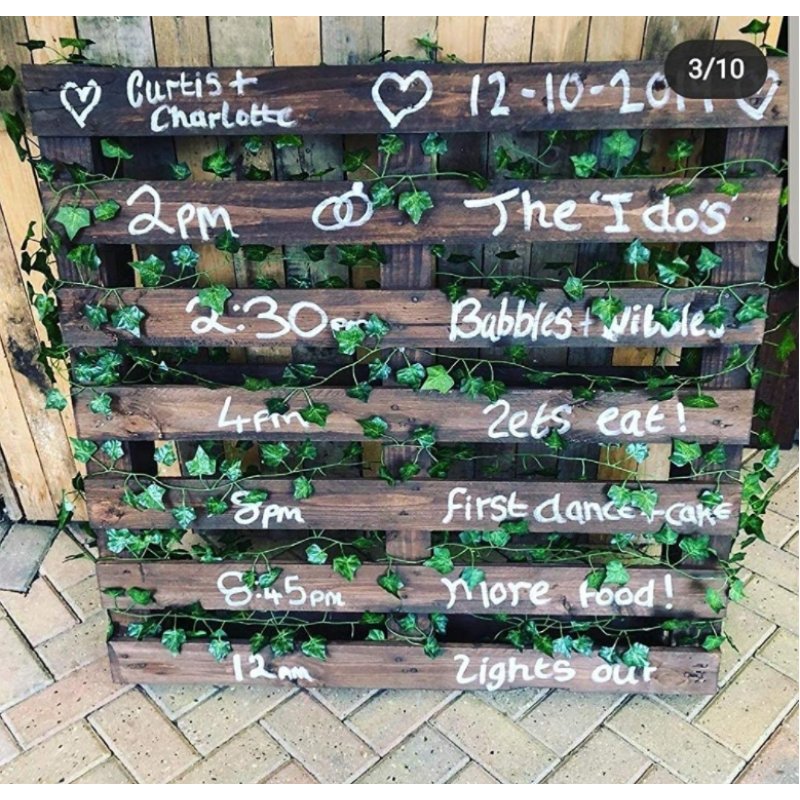 3/10
Curtis +
Charlotte
12-10-20
2pm The 'I do's'
2:30pm Bubbles +
4pm Lets eat!
8pm first dance + cake
8.45pm More Food!
12am Lights out